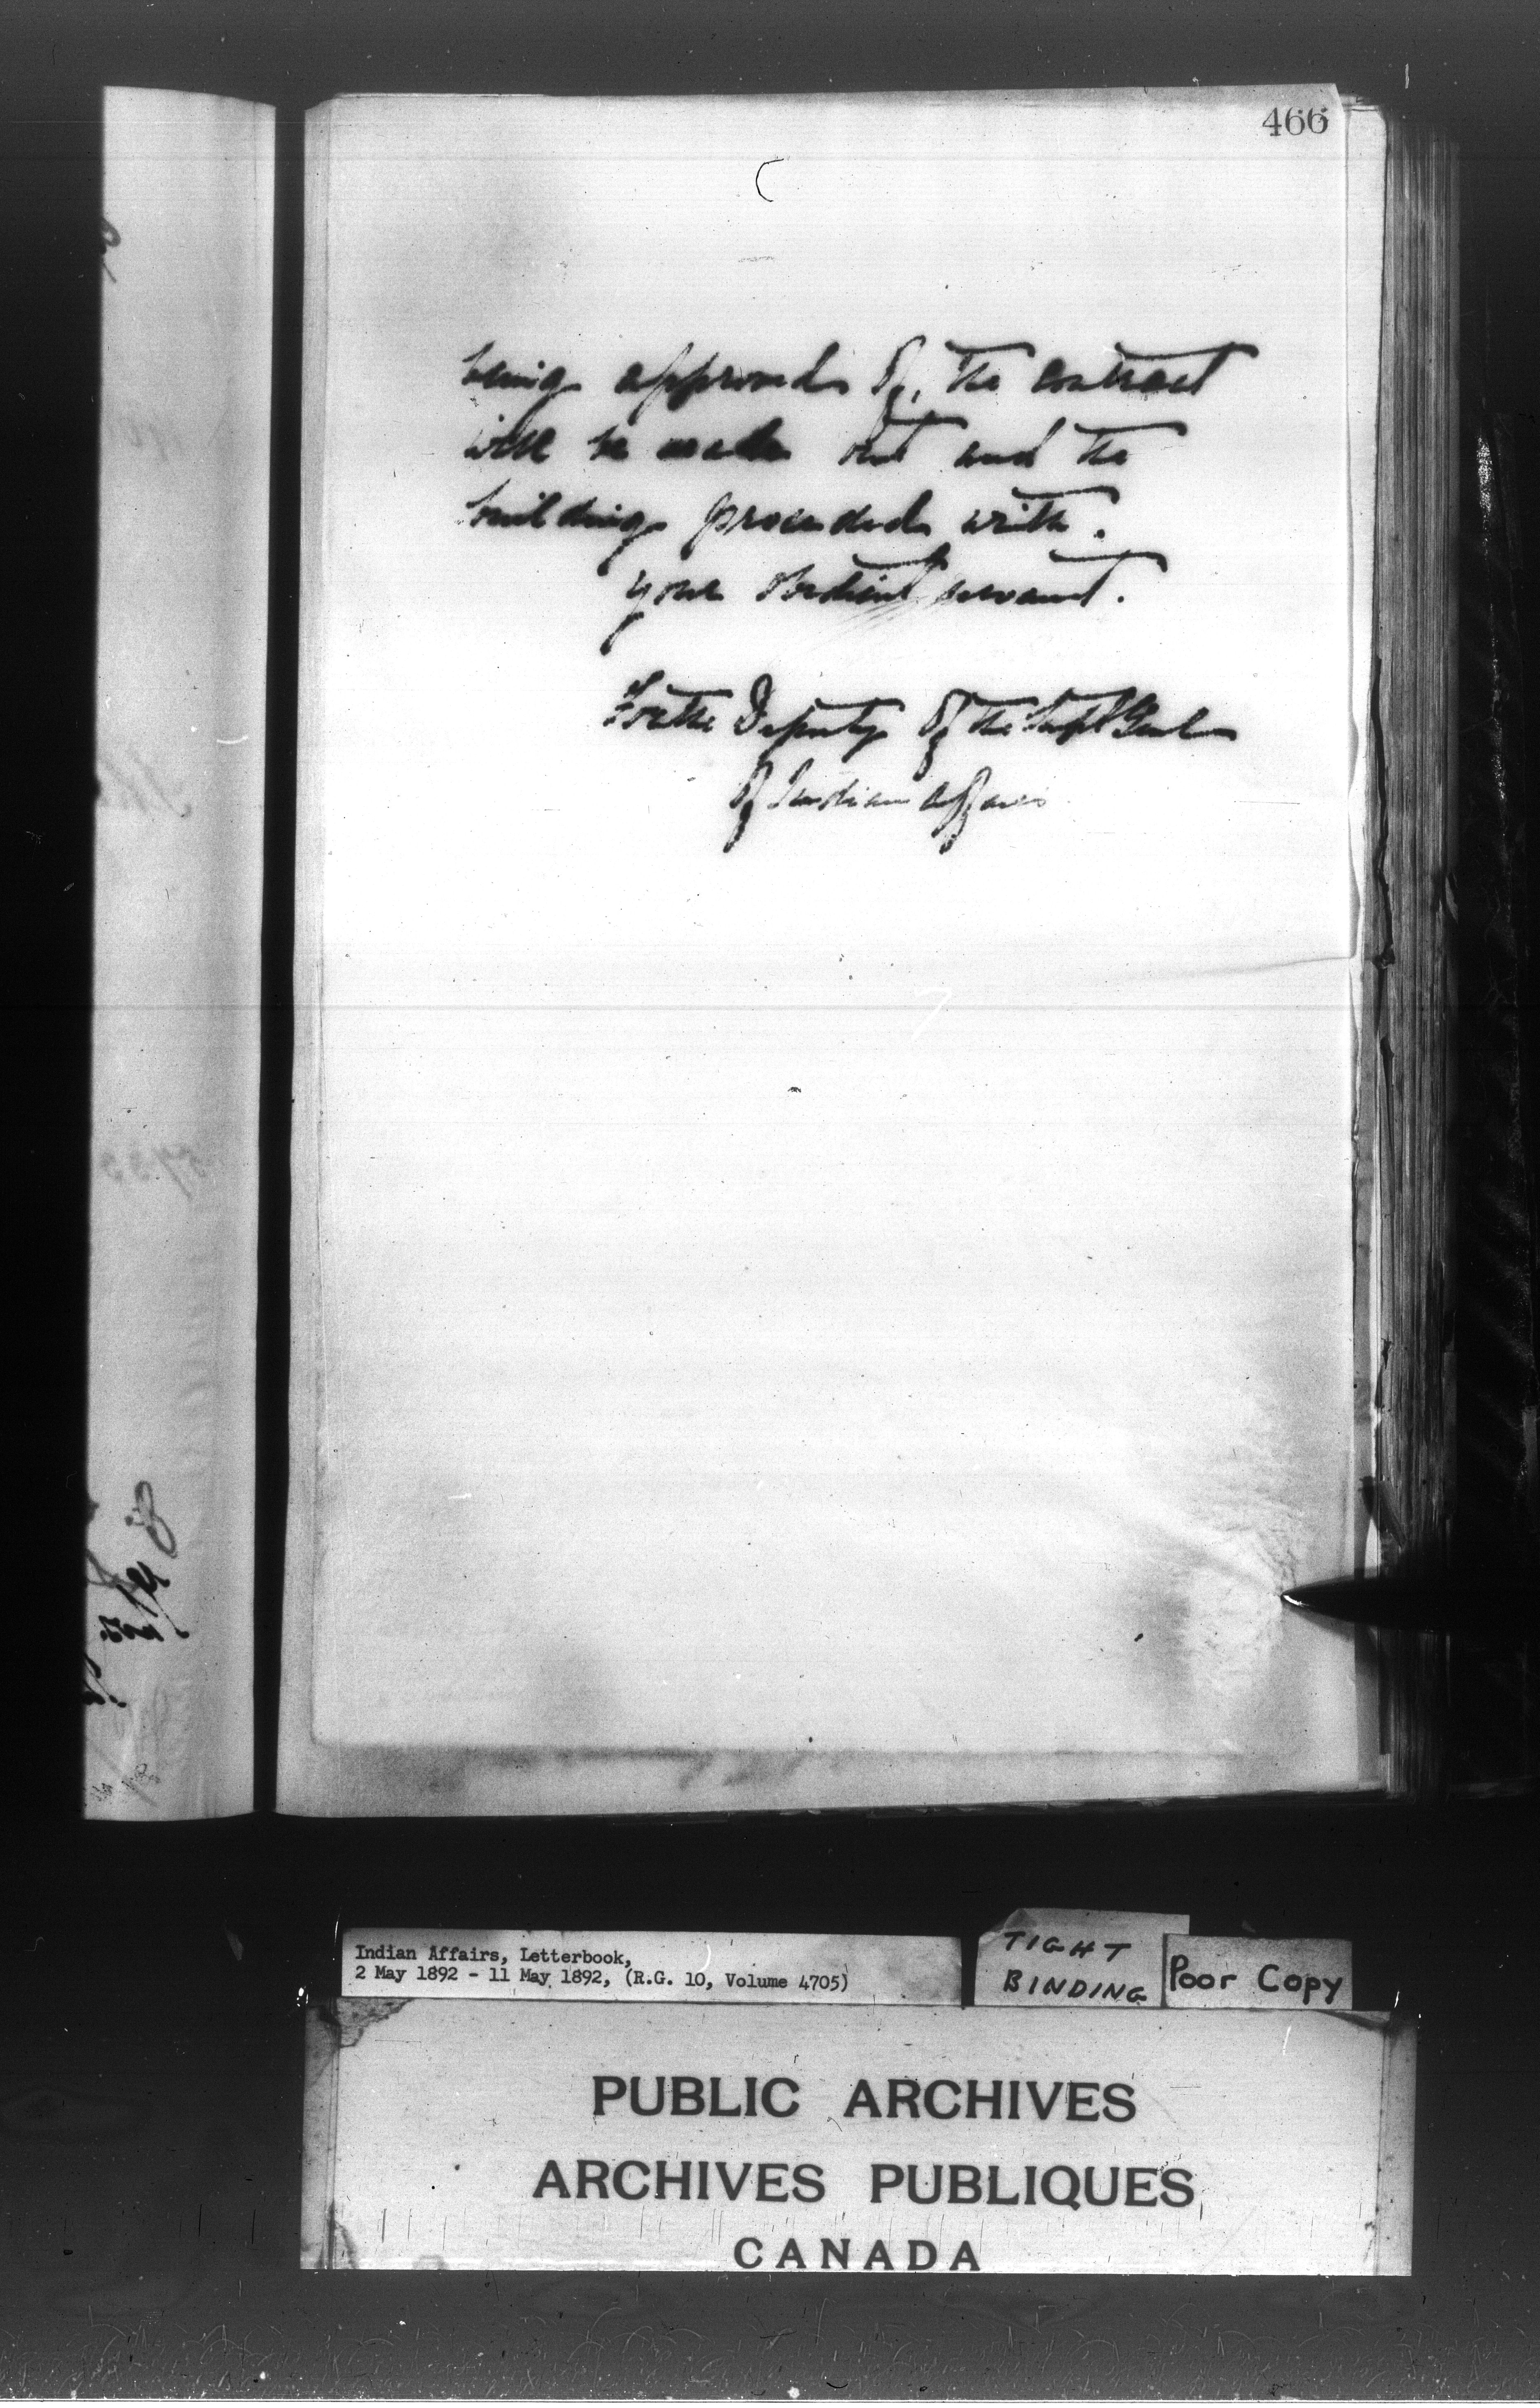 466
being approved of, the contract
will be made out and the
building proceeded with.
your obedient servant.
For the Deputy of the Supt Genl
of Indian Affairs
Indian Affairs, Letterbook,
2 May 1892 - 11 May 1892, (R.G. 10, Volume 4705)
TIGHT
BINDING
Poor Copy
PUBLIC ARCHIVES
ARCHIVES PUBLIQUES
CANADA